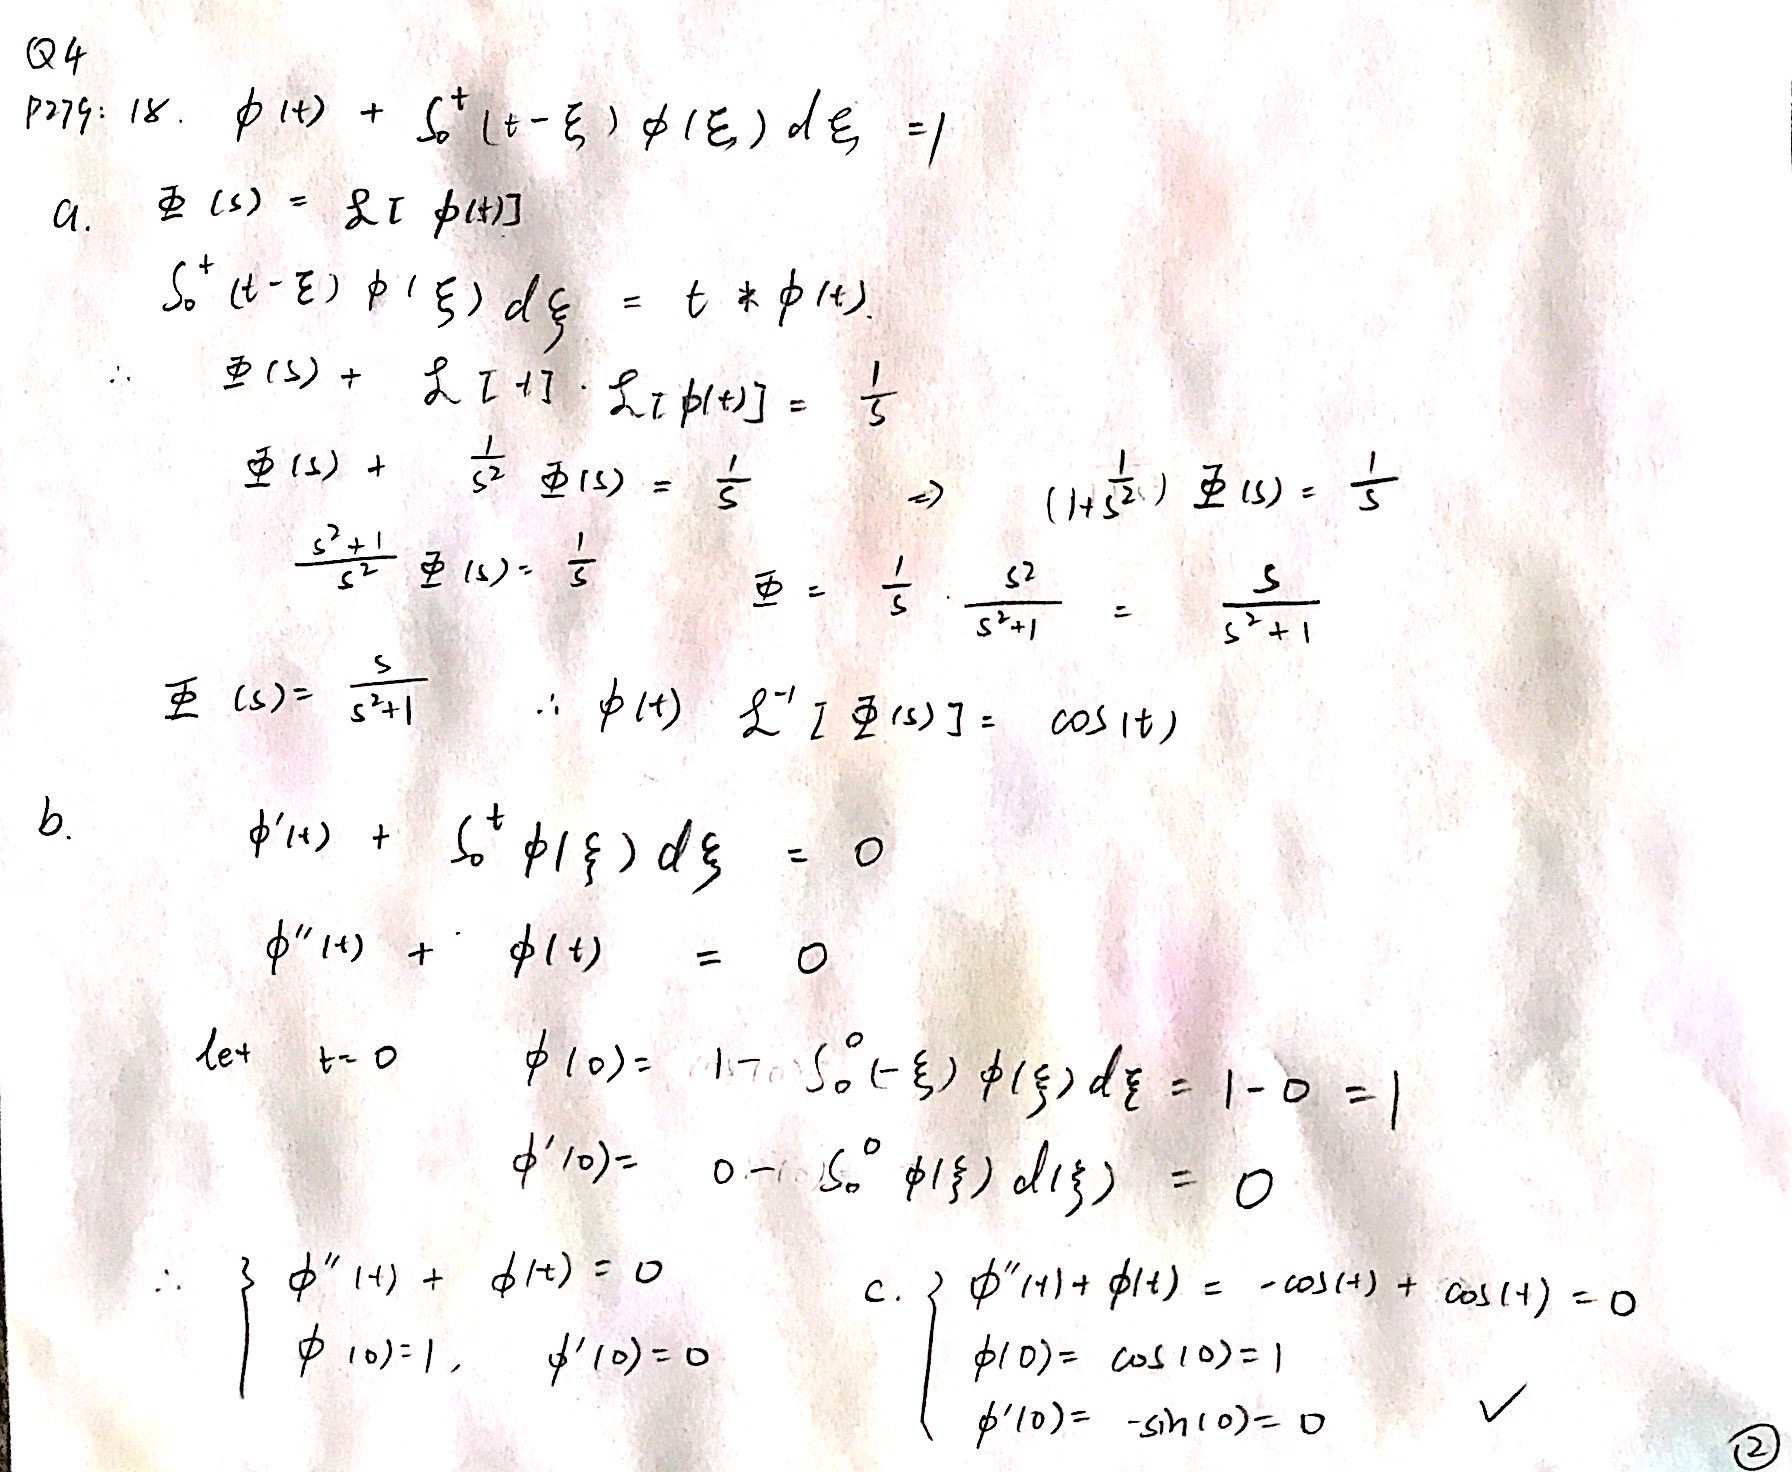 Q4
P279: 18. ϕ(t) + ∫₀ᵗ (t-ξ) ϕ(ξ) dξ = 1
a. Φ(s) = ℒ[ϕ(t)]
∫₀ᵗ (t-ξ) ϕ(ξ) dξ = t * ϕ(t).
∴ Φ(s) + ℒ[t] · ℒ[ϕ(t)] = 1/s
Φ(s) + 1/s² Φ(s) = 1/s ⇒ (1+1/s²) Φ(s) = 1/s
(s²+1)/s² Φ(s) = 1/s Φ = 1/s · s²/(s²+1) = s/(s²+1)
Φ(s) = s/(s²+1) ∴ ϕ(t) ℒ⁻¹[Φ(s)] = cos(t)
b. ϕ'(t) + ∫₀ᵗ ϕ(ξ) dξ = 0
ϕ''(t) + ϕ(t) = 0
let t=0 ϕ(0) = 1 - ∫₀⁰ (-ξ) ϕ(ξ) dξ = 1-0 = 1
ϕ'(0) = 0 - ∫₀⁰ ϕ(ξ) d(ξ) = 0
∴ { ϕ''(t) + ϕ(t) = 0
ϕ(0)=1, ϕ'(0)=0
c. { ϕ''(t) + ϕ(t) = -cos(t) + cos(t) = 0
ϕ(0) = cos(0) = 1
ϕ'(0) = -sin(0) = 0 ✓
②